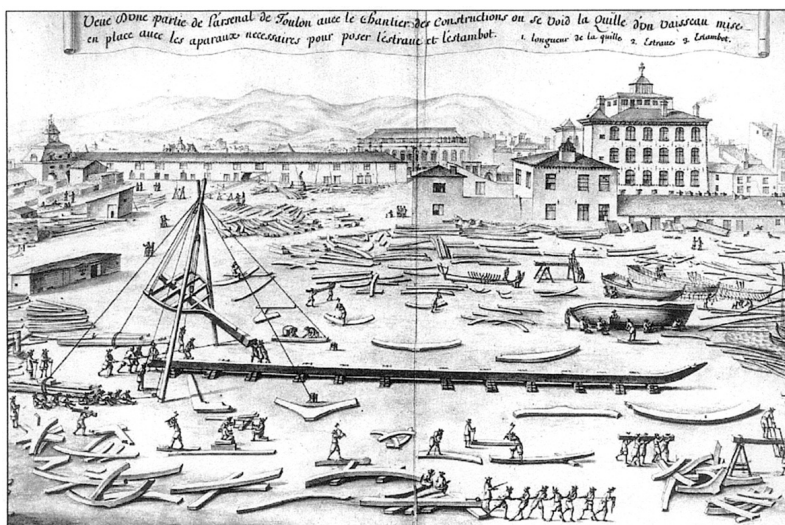 Veue d'vne partie de l'arsenal de Toulon auec le Chantier des Constructions ou se Void la Quille d'vn Vaisseau mise
en place auec les aparaux necessaires pour poser l'estraue et l'estambot. 1. longueur de la quille 2. Estraue 3. Estambot.